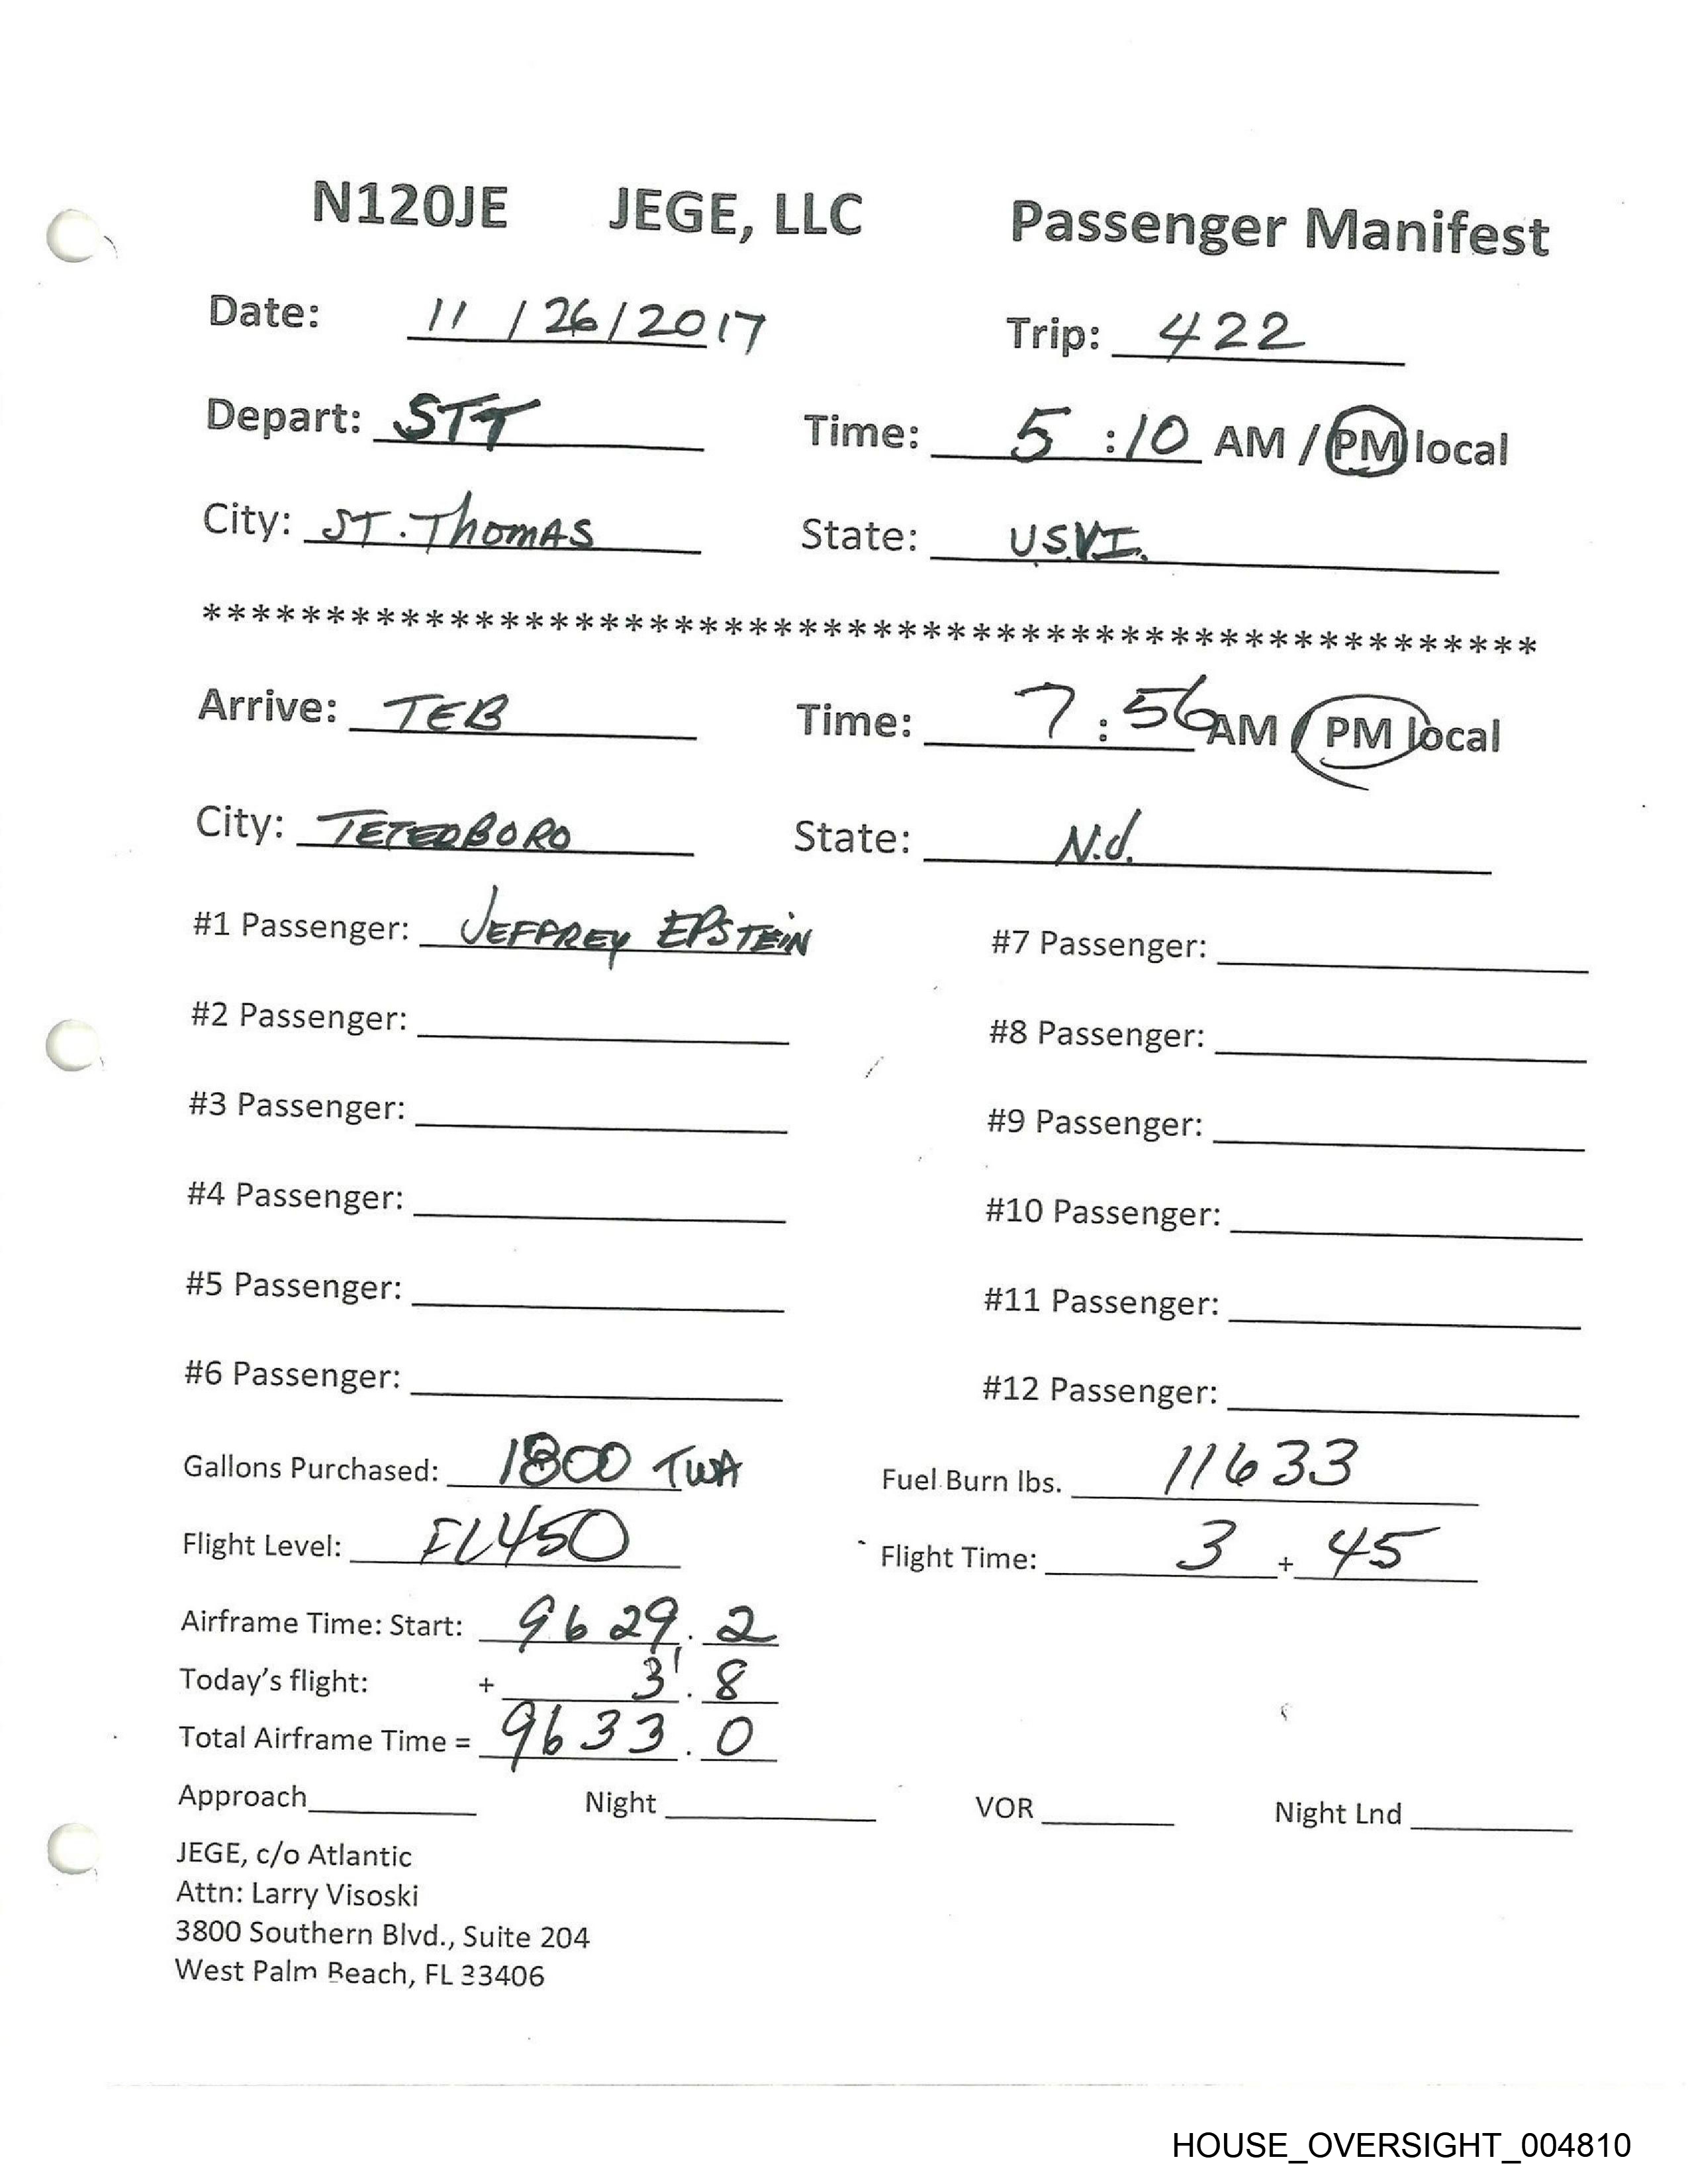 N120JE JEGE, LLC Passenger Manifest
Date: 11 / 26 / 2017 Trip: 422
Depart: STT Time: 5 :10 AM / PM local
City: ST. Thomas State: USVI.
******************************************************
Arrive: TEB Time: 7 : 56 AM / PM local
City: TETERBORO State: N.J.
#1 Passenger: JEFFREY EPSTEIN #7 Passenger:
#2 Passenger: #8 Passenger:
#3 Passenger: #9 Passenger:
#4 Passenger: #10 Passenger:
#5 Passenger: #11 Passenger:
#6 Passenger: #12 Passenger:
Gallons Purchased: 1800 TWA Fuel Burn lbs. 11633
Flight Level: FL450 Flight Time: 3 + 45
Airframe Time: Start: 9629.2
Today's flight: + 3.8
Total Airframe Time = 9633.0
Approach Night VOR Night Lnd
JEGE, c/o Atlantic
Attn: Larry Visoski
3800 Southern Blvd., Suite 204
West Palm Beach, FL 33406
HOUSE_OVERSIGHT_004810